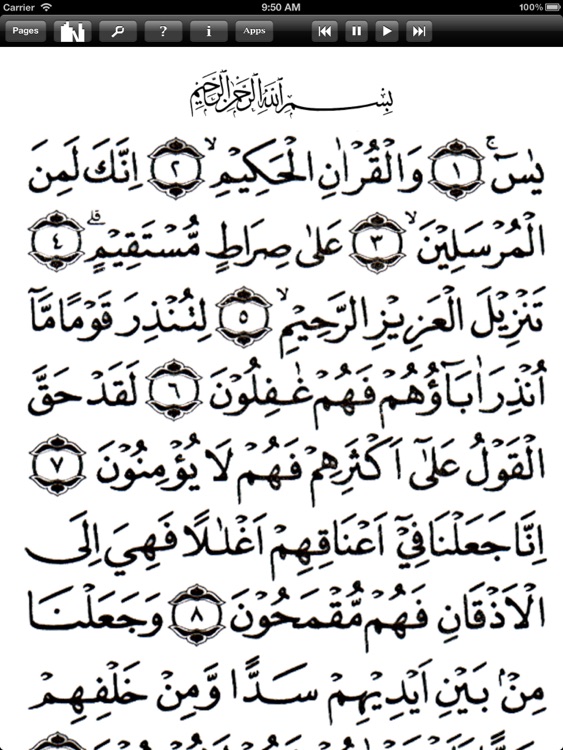 Carrier 9:50 AM 100%
Pages ? i Apps
بِسْمِ اللهِ الرَّحْمٰنِ الرَّحِيْمِ
يٰسٓ ۚ ١ وَالْقُرْاٰنِ الْحَكِيْمِ ۙ ٢ اِنَّكَ لَمِنَ
الْمُرْسَلِيْنَ ۙ ٣ عَلٰى صِرَاطٍ مُّسْتَقِيْمٍ ۗ ٤
تَنْزِيْلَ الْعَزِيْزِ الرَّحِيْمِ ۙ ٥ لِتُنْذِرَ قَوْمًا مَّآ
اُنْذِرَ اٰبَاۤؤُهُمْ فَهُمْ غٰفِلُوْنَ ٦ لَقَدْ حَقَّ
الْقَوْلُ عَلٰٓى اَكْثَرِهِمْ فَهُمْ لَا يُؤْمِنُوْنَ ٧
اِنَّا جَعَلْنَا فِيْٓ اَعْنَاقِهِمْ اَغْلٰلًا فَهِيَ اِلَى
الْاَذْقَانِ فَهُمْ مُّقْمَحُوْنَ ٨ وَجَعَلْنَا
مِنْۢ بَيْنِ اَيْدِيْهِمْ سَدًّا وَّمِنْ خَلْفِهِمْ